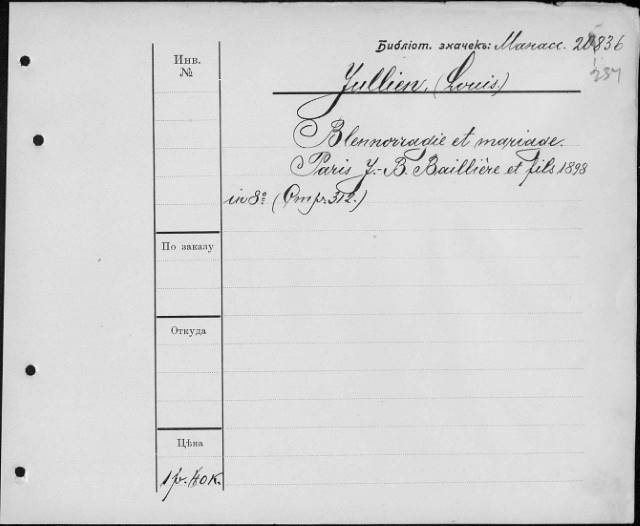 Библіот. значекъ: Манас. 20836
237
Инв.
№
Jullien, (Louis)
Blennorragie et mariage.
Paris J.-B. Baillière et fils 1898
in 8º (Стр. 312.)
По заказу
Откуда
Цѣна
1 р. 40 к.